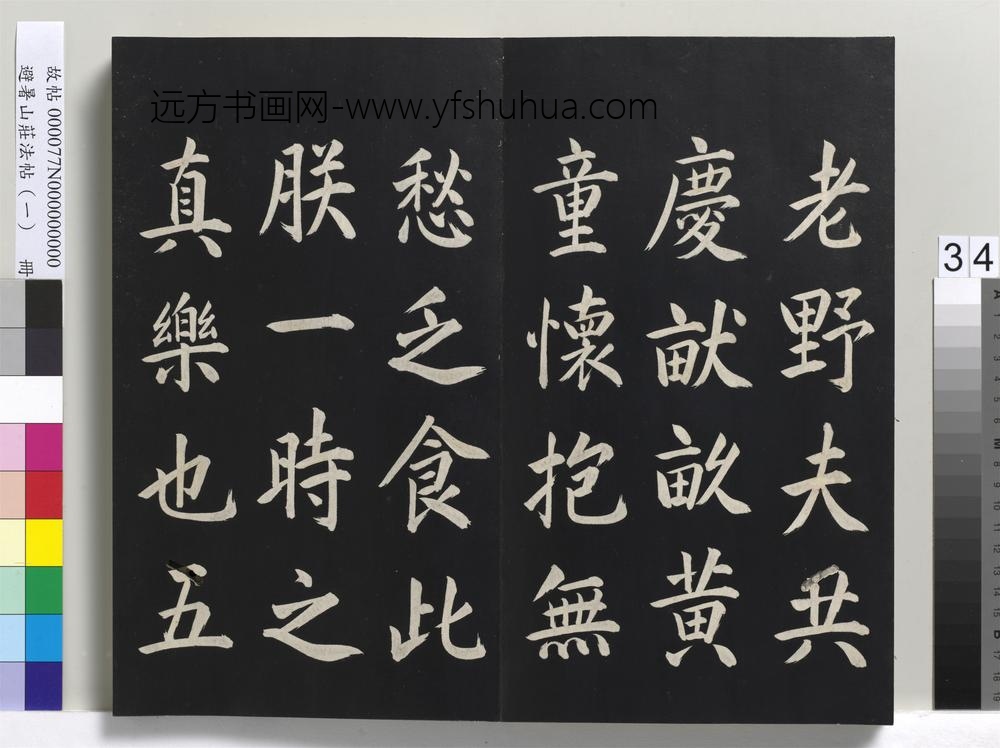 远方书画网-www.yfshuhua.com
老野夫共
慶畎畝黃
童懷抱無
愁乏食此
朕一時之
真樂也五
故帖 000077N000000000
避暑山莊法帖（一） 冊
34